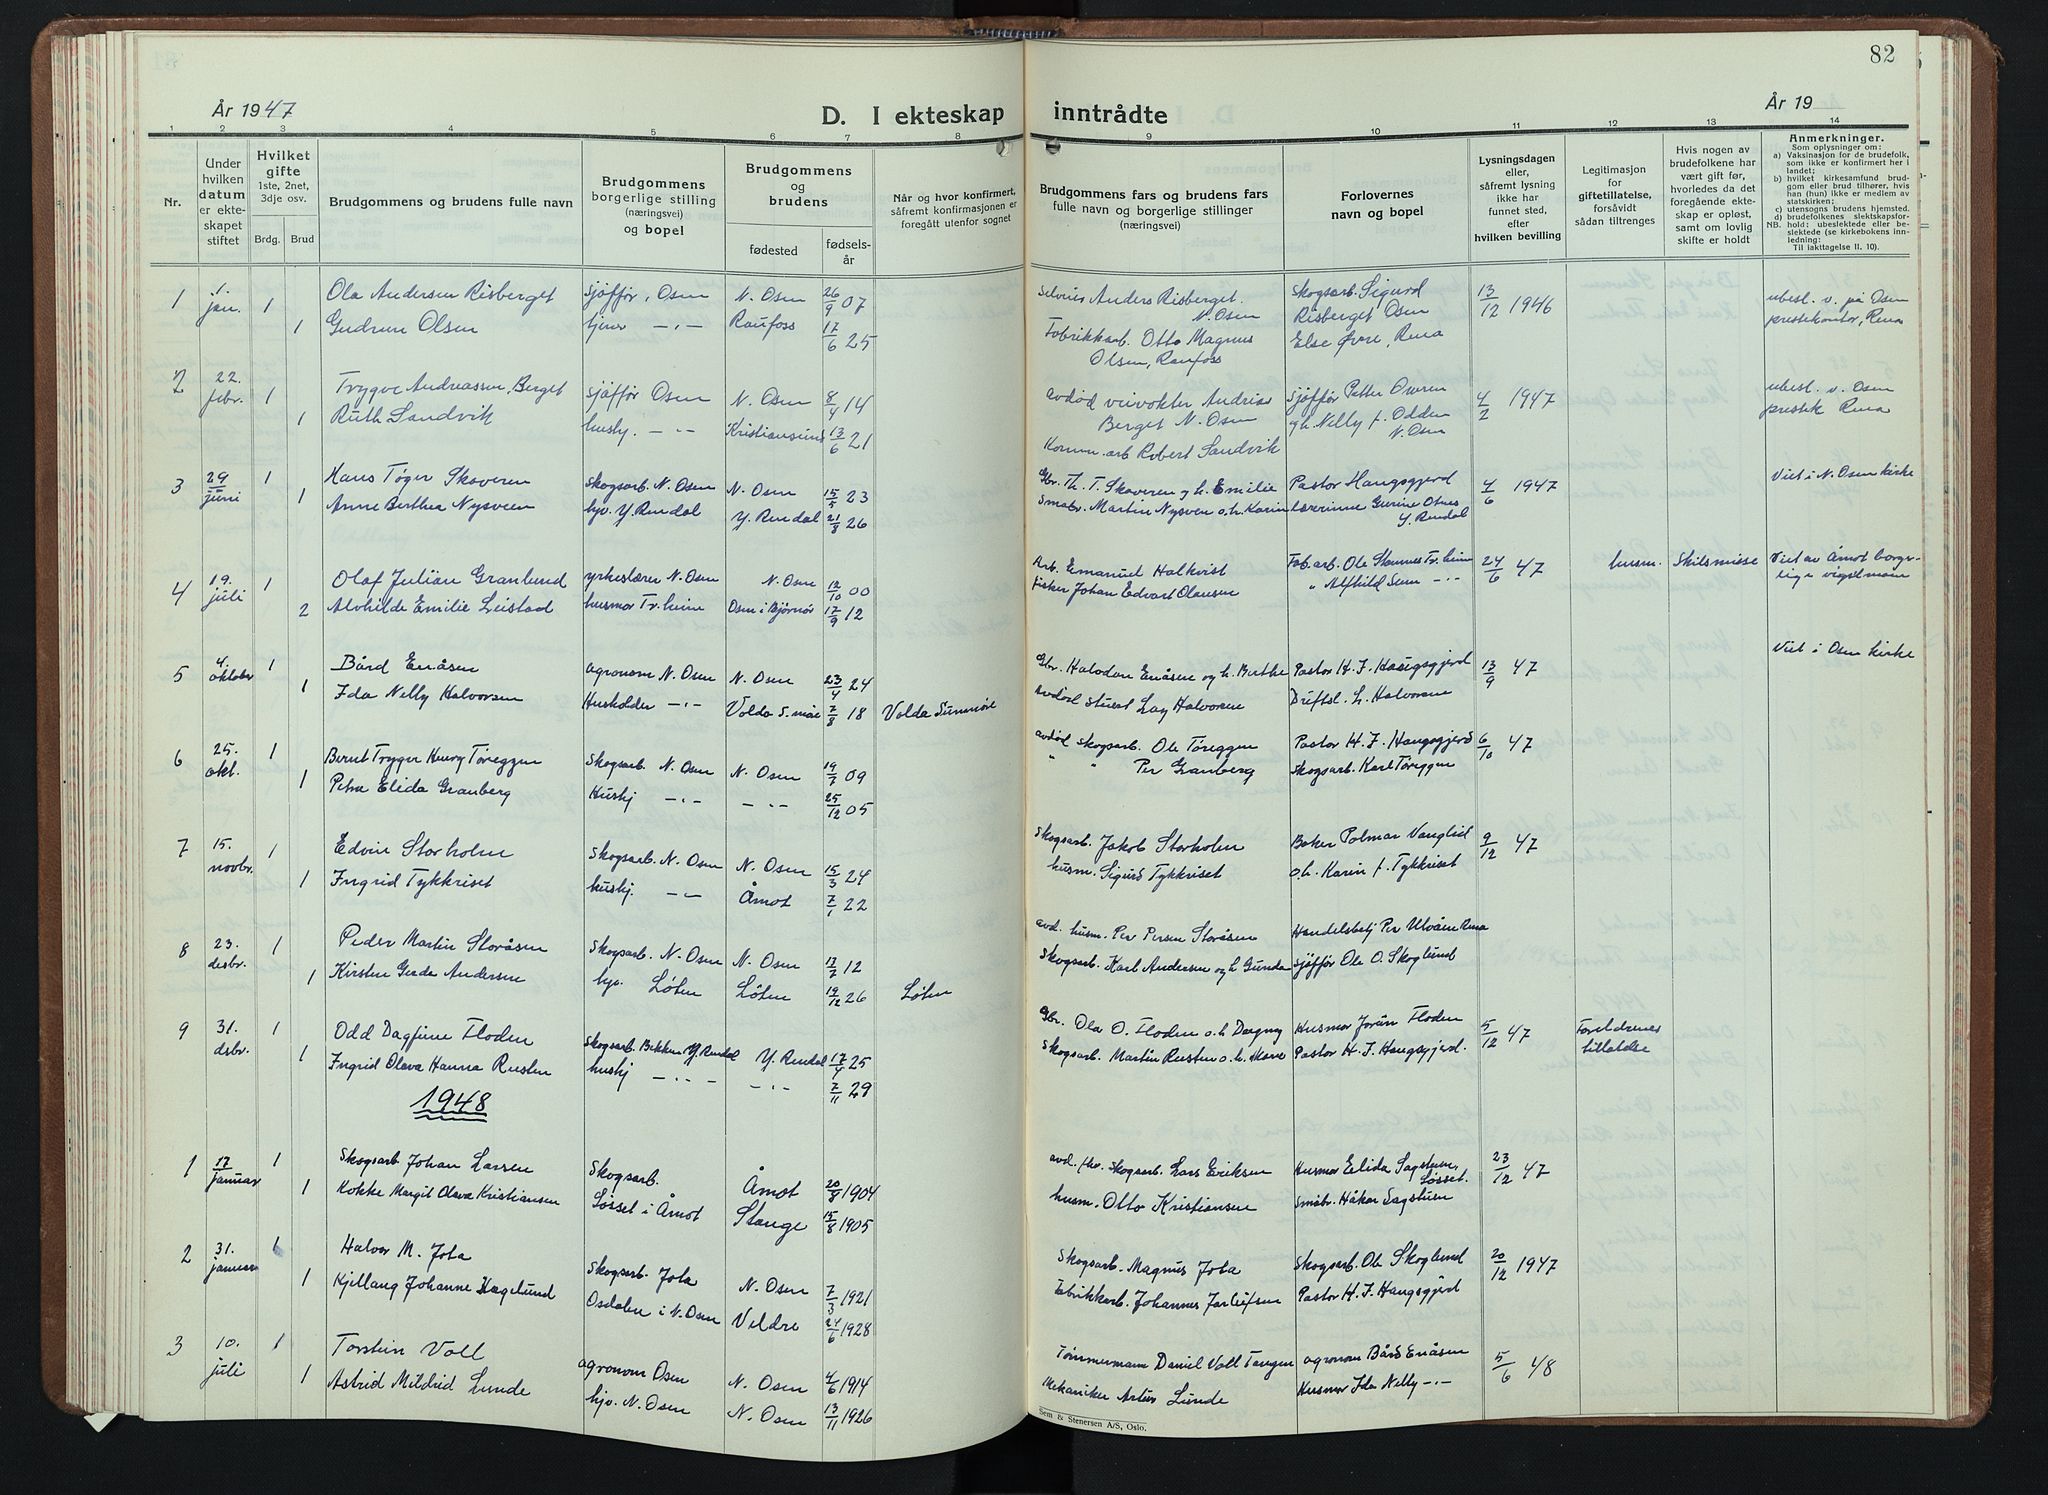 82
År 1947
D. I ekteskap inntrådte
År 19
1 2 3 4 5 6 7 8 9 10 11 12 13 14
Nr.
Under hvilken datum er ekteskapet stiftet
Hvilket gifte 1ste, 2net, 3dje osv.
Brdg. Brud
Brudgommens og brudens fulle navn
Brudgommens borgerlige stilling (næringsvei) og bopel
Brudgommens og brudens
fødested
fødselsår
Når og hvor konfirmert, såfremt konfirmasjonen er foregått utenfor sognet
Brudgommens fars og brudens fars fulle navn og borgerlige stillinger (næringsvei)
Forlovernes navn og bopel
Lysningsdagen eller, såfremt lysning ikke har funnet sted, efter hvilken bevilling
Legitimasjon for giftetillatelse, forsåvidt sådan tiltrenges
Hvis nogen av brudefolkene har vært gift før, hvorledes da det foregående ekteskap er opløst, samt om lovlig skifte er holdt
Anmerkninger.
Som oplysninger om:
a) Vaksinasjon for de brudefolk, som ikke er konfirmert her i landet;
b) hvilket kirkesamfund brudgom eller brud tilhører, hvis han (hun) ikke er medlem av statskirken;
c) utensogns brudens hjemsted.
d) brudefolkenes slektskapsforhold: ubeslektede eller beslektede (se kirkebokens innledning:
NB. Til iakttagelse II. 10).
1 1. jan. 1 Ola Andersen Risberget sjåffør, Osen N. Osen 26/9 07 Anders Risberget. N. Osen Skogsarb. Sigurd Risberget Osen 13/12 1946 ubesl. v. på Osen prestekontor, Rena
1 Gudrun Olsen tjener -,- Raufoss 17/6 25 Fabrikkarb. Otto Magnus Olsen, Raufoss Else Øvre, Rena
2 22. febr. 1 Trygve Andreassen, Berget sjåffør Osen N. Osen 8/4 14 avdød veivokter Andreas Berget N. Osen Sjåffør Petter Osvren 4/2 1947 ubesl. v. Osen prestek Rena
1 Ruth Sandvik hushj. -"- Kristiansund 13/6 21 Komm. arb Robert Sandvik og h. Nelly f. Odden N. Osen
3 29/juni 1 Hans Tøger Skaveren skogsarb. N. Osen N. Osen 15/5 23 Gbr. Th. T. Skaveren og h. Emilie Pastor Haugsgjerd 4/6 1947 Viet i N. Osen kirke
1 Anne Berthea Nysveen hjv. Y. Rendal Y. Rendal 21/8 26 Småbr. Martin Nysveen o.h. Karin Lærerinne Gurine Otnes Y. Rendal
4 19. juli 1 Olaf Julian Granlund yrkeslærer N. Osen N. Osen 12/10 00 Arb. Emanuel Halkvist Fab. arb. Ole Stamnes Tr. heim 24/6 47 husm. Skilsmisse Viet av Åmot borgelige vigselmann
2 Alvhilde Emilie Leistad husmor Tr. heim Osen i Bjørnør 17/9 12 Fisker Johan Edvart Olausen " Alfhild Sem -"-
5 4. oktober 1 Bård Enåsen agronom N. Osen N. Osen 23/4 24 Gbr. Halvdan Enåsen og h. Berthe Pastor H. J. Haugsgjerd 13/9 47 Viet i Osen kirke
1 Ida Nelly Halvorsen Husholder -"- Volda S. møre 7/8 18 Volda Sunnmøre avdød stuert Lay Halvorsen Driftsl. L. Halvorsen
6 25. okt. 1 Bernt Trygve Henry Tøreggen Skogsarb. N. Osen N. Osen 19/7 09 avdød skogsarb. Ole Tøreggen Pastor H. J. Haugsgjerd 6/10 47
1 Petra Elida Granberg Hushj -"- -"- 25/12 05 " " Per Granberg Skogsarb. Karl Tøreggen
7 15. novbr. 1 Edvin Storholm Skogsarb. N. Osen N. Osen 15/3 24 Skogsarb. Jakob Storholm Baker Polmar Vanglid 9/12 47
1 Ingrid Tykkriset hushj. -"- Åmot 7/1 22 husm. Sigurd Tykkriset o.h. Karin f. Tykkriset
8 23. desbr. 1 Peder Martin Storåsen Skogsarb. N. Osen N. Osen 17/7 12 avd. husm. Per Persen Storåsen Handelsbetj Per Ulvåen Rena
1 Kirsten Gerda Andersen hjv. Løten Løten 19/12 26 Løten Skogsarb. Karl Andersen og h Gunda sjåffør Ole O. Skoglund
9 31. desbr. 1 Odd Dagfinn Floden Skogsarb. Bekken Y. Rendal Y. Rendal 17/4 25 Gbr. Ola O. Floden o.h Dagny Husmor Jorun Floden 5/12 47 Foreldrenes tillatelse
1 Ingrid Olava Hanna Rusten hushj -"- -"- 7/11 29 Skogsarb. Martin Rusten o.h. Pastor H. J. Haugsgjerd.
1948
1 17/januar 1 Skogsarb Johan Larsen Skogsarb. Åmot 20/8 1904 avd. fhv. skogsarb. Lars Eriksen Husmor Elida Sagstuen, Løsset. 23/12 47
1 Kokke Margit Olava Kristiansen Løsset i Åmot Stange 15/8 1905 husm. Otto Kristiansen Småbr. Håkon Sagstuen
2 31. januar 1 Halvor M. Jota Skogsarb. Jota N. Osen 7/3 1921 Skogsarb. Magnus Jota Skogsarb. Ole Skoglund 20/12 1947
1 Kjellaug Johanne Hagelund Osdalen i N. Osen Veldre 24/6 1928 Fabrikkarb. Johannes Jarleifsen Pastor H. J. Haugsgjerd
3 10. juli 1 Torstein Voll agronom Osen N. Osen 4/6 1914 Tømmermann Daniel Voll Tangen agronom Bård Enåsen 5/6 48
1 Astrid Mildrid Lunde hjv. N. Osen N. Osen 13/11 1926 Mekaniker Artur Lunde Husmor Ida Nelly -"-
Sem & Stenersen A/S, Oslo.